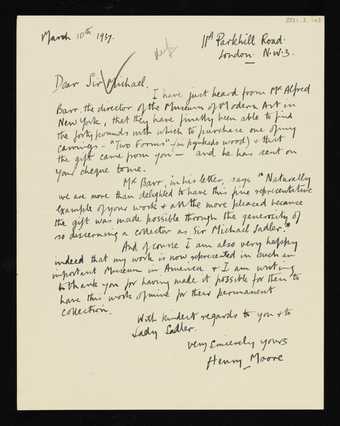 March 10th 1937.
11A Parkhill Road.
London. N.W.3.
Dear Sir Michael.
I have just heard from Mr Alfred
Barr, the director of the Museum of Modern Art in
New York, that they have finally been able to find
the forty pounds with which to purchase one of my
carvings - "Two Forms" (in pynkado wood) & that
the gift came from you - and he has sent on
your cheque to me.
Mr Barr, in his letter, says "Naturally
we are more than delighted to have this fine representative
example of your work & all the more pleased because
the gift was made possible through the generosity of
so discerning a collector as Sir Michael Sadler."
And of course I am also very happy
indeed that my work is now represented in such an
important Museum in America & I am writing
to thank you for having made it possible for them to
have this work of mine for their permanent
collection.
With kindest regards to you & to
Lady Sadler.
very sincerely yours
Henry Moore